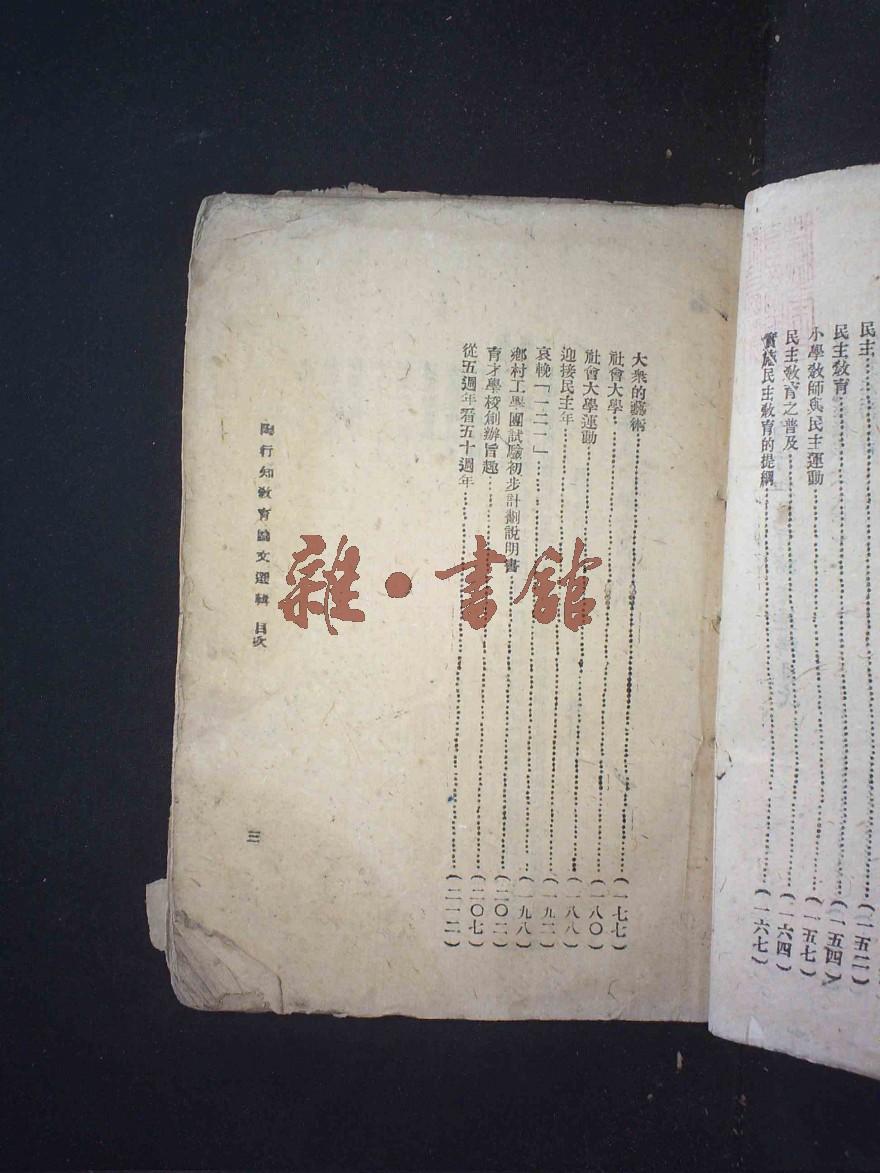 民主……(一五二)
民主教育……(一五四)
小學教師與民主運動……(一五七)
民主教育之普及……(一六四)
實施民主教育的提綱……(一六七)
大衆的藝術……(一七七)
社會大學……(一八〇)
社會大學運動……(一八八)
迎接民主年……(一九二)
哀輓「一二一」……(一九八)
鄉村工學團試驗初步計劃說明書……(二〇二)
育才學校創辦旨趣……(二〇七)
從五週年看五十週年……(二一二)
陶行知教育論文選輯 目次
三
雜·書館